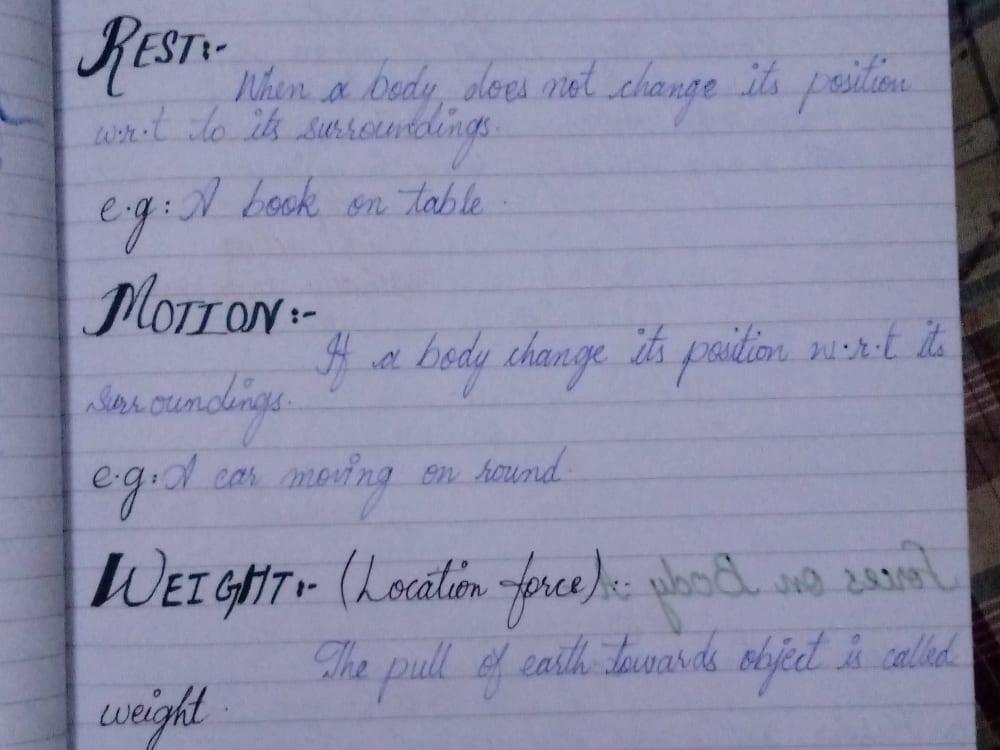 REST:-
When a body does not change its position
w.r.t to its surroundings.
e.g: A book on table.
MOTION:-
If a body change its position w.r.t its
surroundings.
e.g: A car moving on round.
WEIGHT:- (Location force):-
The pull of earth towards object is called
weight.